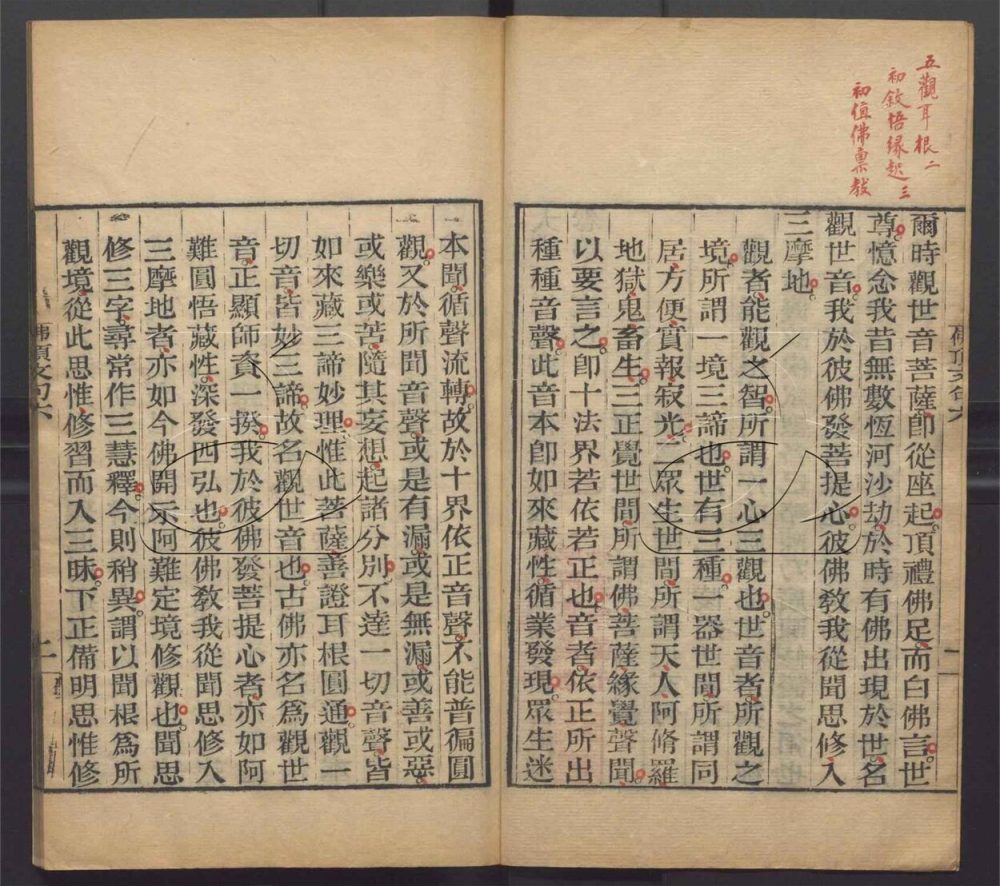 五觀耳根二
初敘悟緣起三
初值佛稟敎
爾時觀世音菩薩卽從座起頂禮佛足而白佛言世
尊憶念我昔無數恆河沙劫於時有佛出現於世名
觀世音我於彼佛發菩提心彼佛敎我從聞思修入
三摩地
觀者能觀之智所謂一心三觀也世音者所觀之
境所謂一境三諦也世有三種一器世間所謂同
居方便實報寂光二眾生世間所謂天人阿脩羅
地獄鬼畜生三正覺世間所謂佛菩薩緣覺聲聞
以要言之卽十法界若依若正也音者依正所出
種種音聲此音本卽如來藏性循業發現眾生迷
佛頂文句六
一
本聞循聲流轉故於十界依正音聲不能普徧圓
觀又於所聞音聲或是有漏或是無漏或善或惡
或樂或苦隨其妄想起諸分別不達一切音聲皆
如來藏三諦妙理惟此菩薩善證耳根圓通觀一
切音皆妙三諦故名觀世音也古佛亦名爲觀世
音正顯師資一揆我於彼佛發菩提心者亦如阿
難圓悟藏性深發四弘也彼佛敎我從聞思修入
三摩地者亦如今佛開示阿難定境修觀也聞思
修三字尋常作三慧釋今則稍異謂以聞根爲所
觀境從此思惟修習而入三昧下正備明思惟修
佛頂文句六